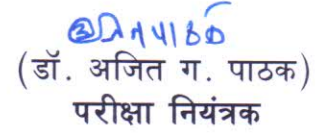 (डॉ. अजित ग. पाठक)
परीक्षा नियंत्रक